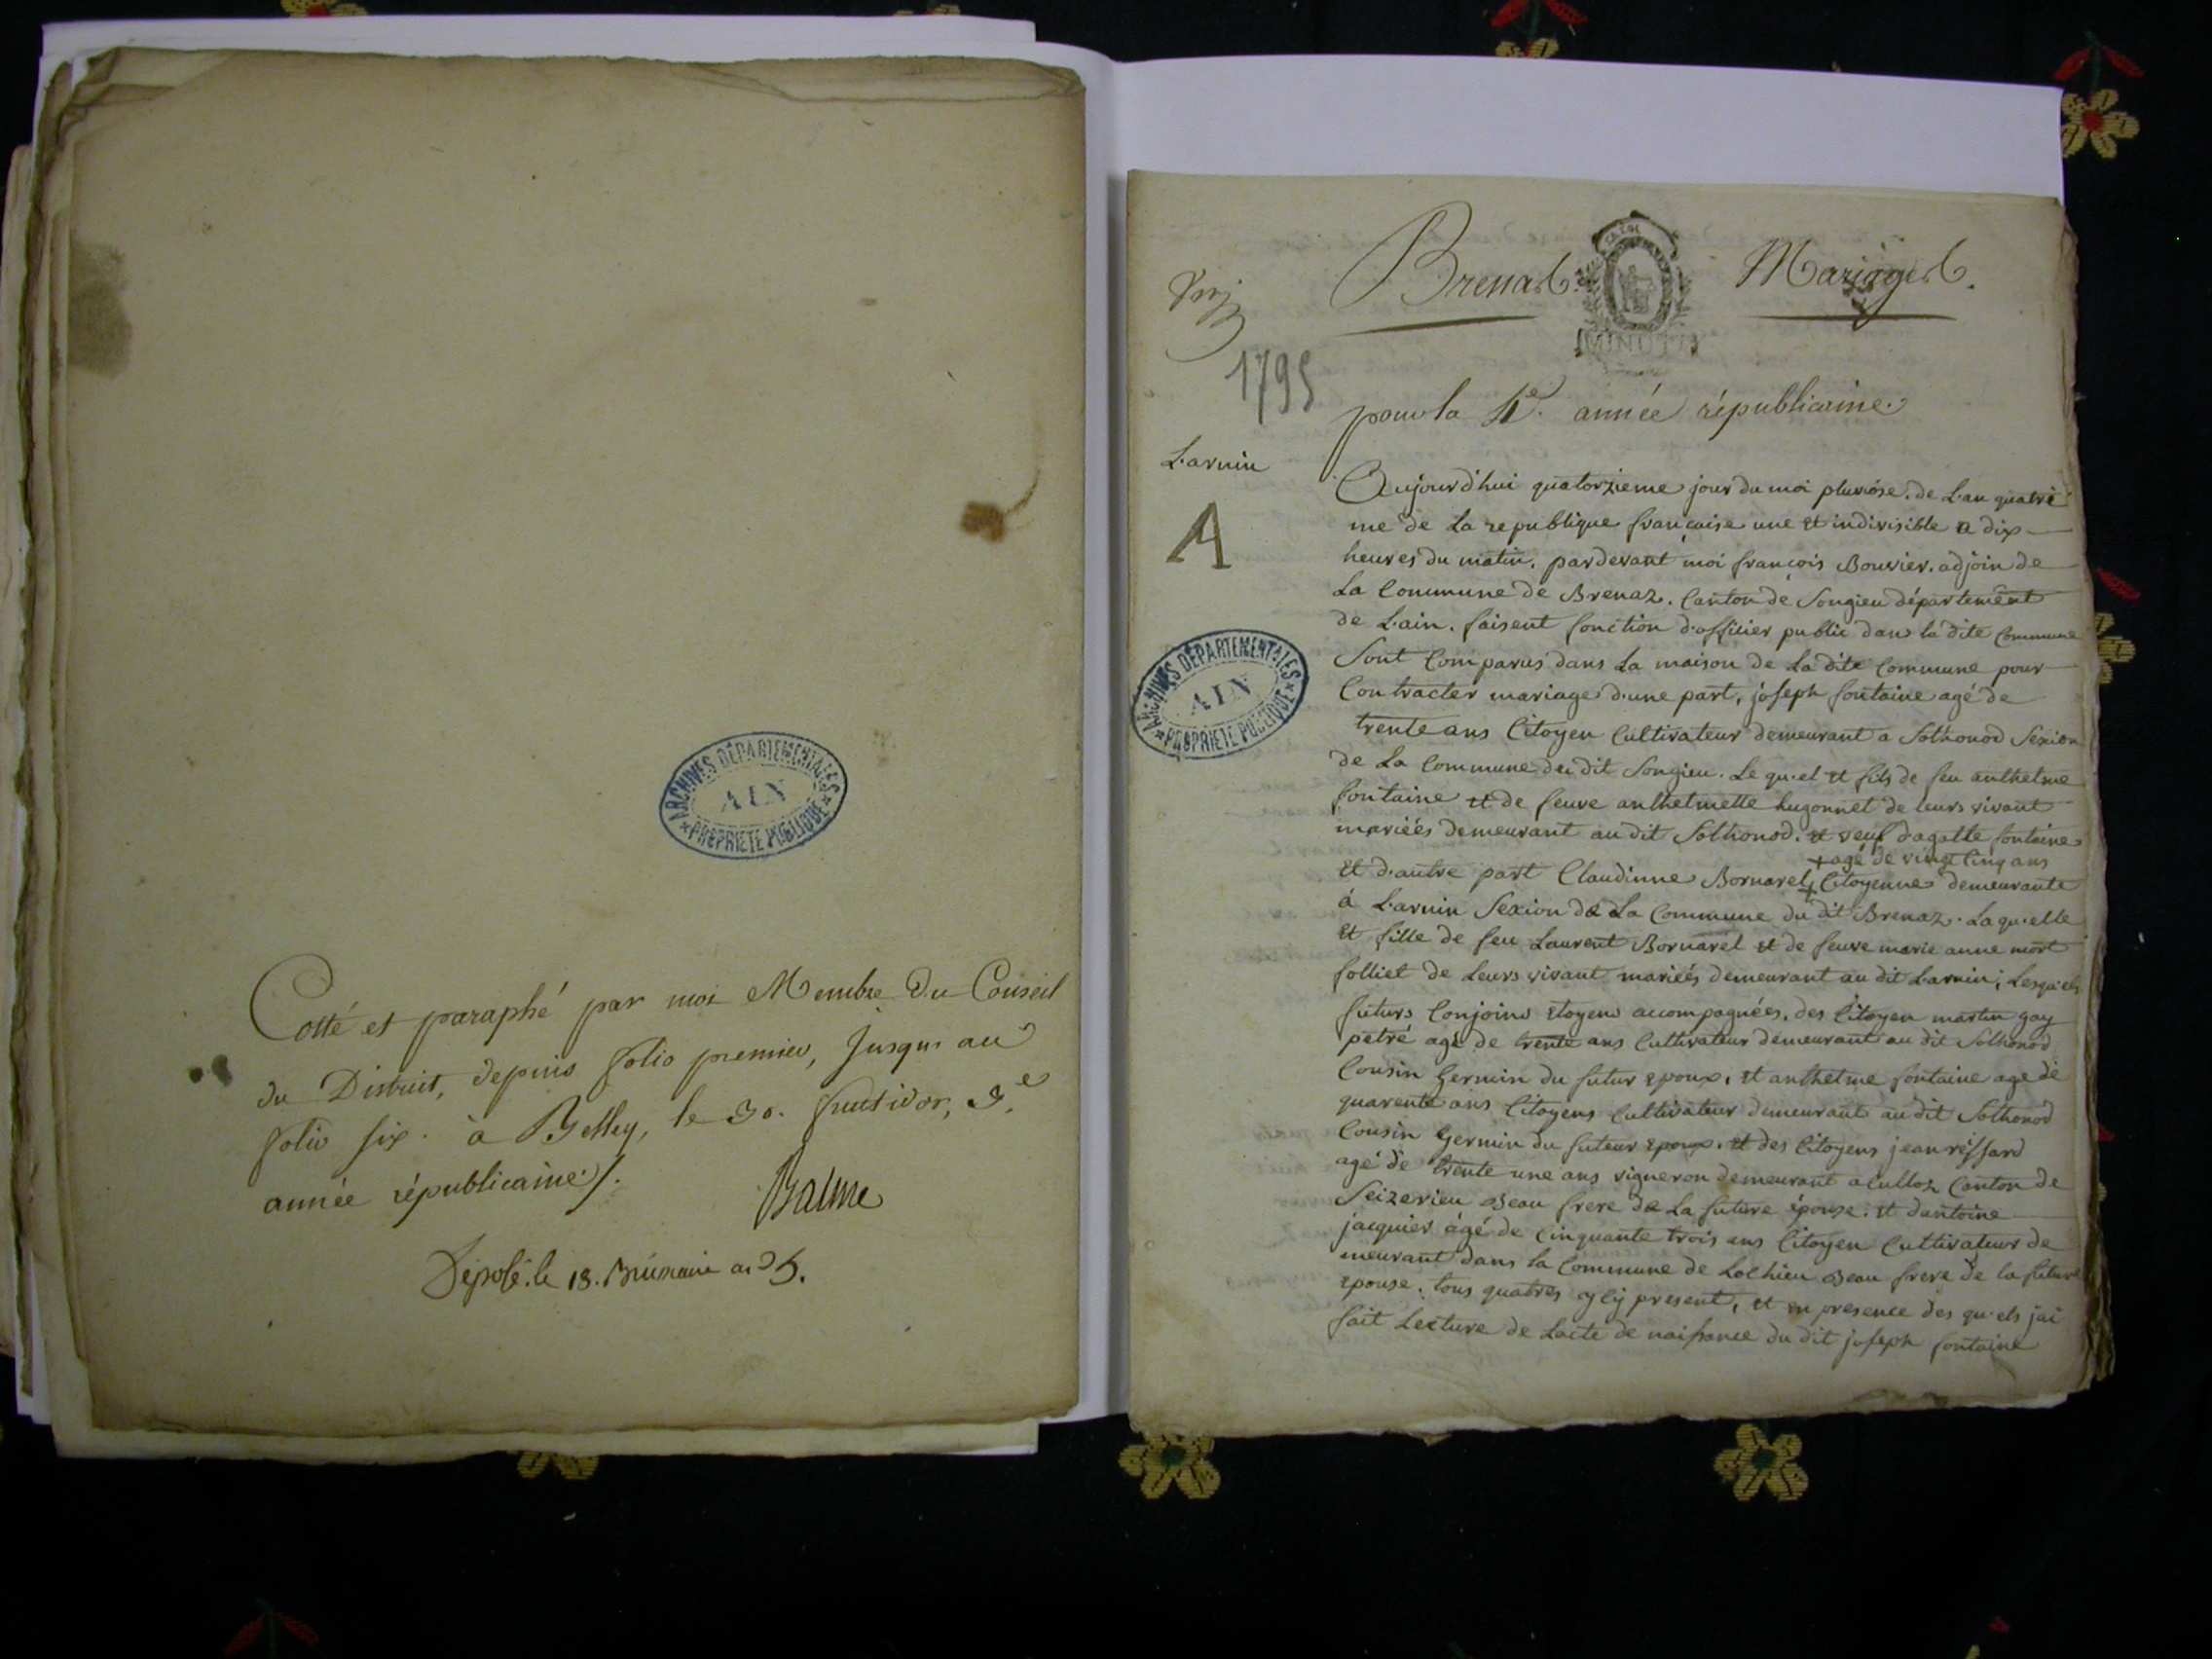 Cotté et paraphé par moi Membre du Conseil
du District, depuis folio premier, jusqu'au
folio six. à Belley, le 30. fructidor, 3.e
année républicaine ./.
Balme
Déposé. le 18. Brumaire an 5.
ARCHIVES DÉPARTEMENTALES
AIN
PROPRIÉTÉ PUBLIQUE
Brenas.
Mariages.
MINUTE
1795
pour la 4e. année républicaine.
L'arvin
A
ARCHIVES DÉPARTEMENTALES
AIN
PROPRIÉTÉ PUBLIQUE
Aujourd'hui quatorzieme jour du moi pluviôse. de L'an quatrie
me de La republique française une et indivisible a dix
heures du matin. pardevant moi françois Bouvier. adjoin de
La Commune de Brenaz. Canton de Songieu département
de L'ain. faisent fonction d'officier public dans la dite Commune
Sont Comparus dans La maison de La dite Commune pour
Contracter mariage d'une part, joseph fontaine agé de
trente ans Citoyen Cultivateur demeurant a Sothonod Sexion
de La Commune du dit Songieu. Le qu'el et fils de feu anthelme
fontaine et de feuve anthelmette hugonnet de leurs vivant
mariéés demeurant au dit Sothonod. et veuf dagatte fontaine
+ agé de vingt Cinq ans
et d'autre part Claudinne Bornarel + Citoyenne demeurante
á L'arvin Sexion de La Commune du dit Brenaz. La qu'elle
et fille de feu Laurent Bornarel et de feuve marie anne mort
folliet de Leurs vivant mariéés demeurant au dit Larvin; Lesqu'els
futurs Conjoins etoyens accompagnées. des Citoyen martin gay
petré agé de trente ans Cultivateur demeurant au dit Sothonod
Cousin Germin du futur epoux. et anthelme fontaine age de
quarente ans Citoyens Cultivateur demeurant au dit Sothonod
Cousin Germin du futeur epoux. et des Citoyens jean riffard
agé de trente une ans vigneron demeurant a Culloz Canton de
Seizerieu Beau frere de La future épouse. et dantoine
jacquier ágé de Cinquante trois ans Citoyen Cultivateur de
meurant dans la Commune de Lochieu Beau frere de la future
epouse. tous quatres y present, et en presence des qu'els jai
fait Lecture de Lacte de naissance du dit joseph fontaine